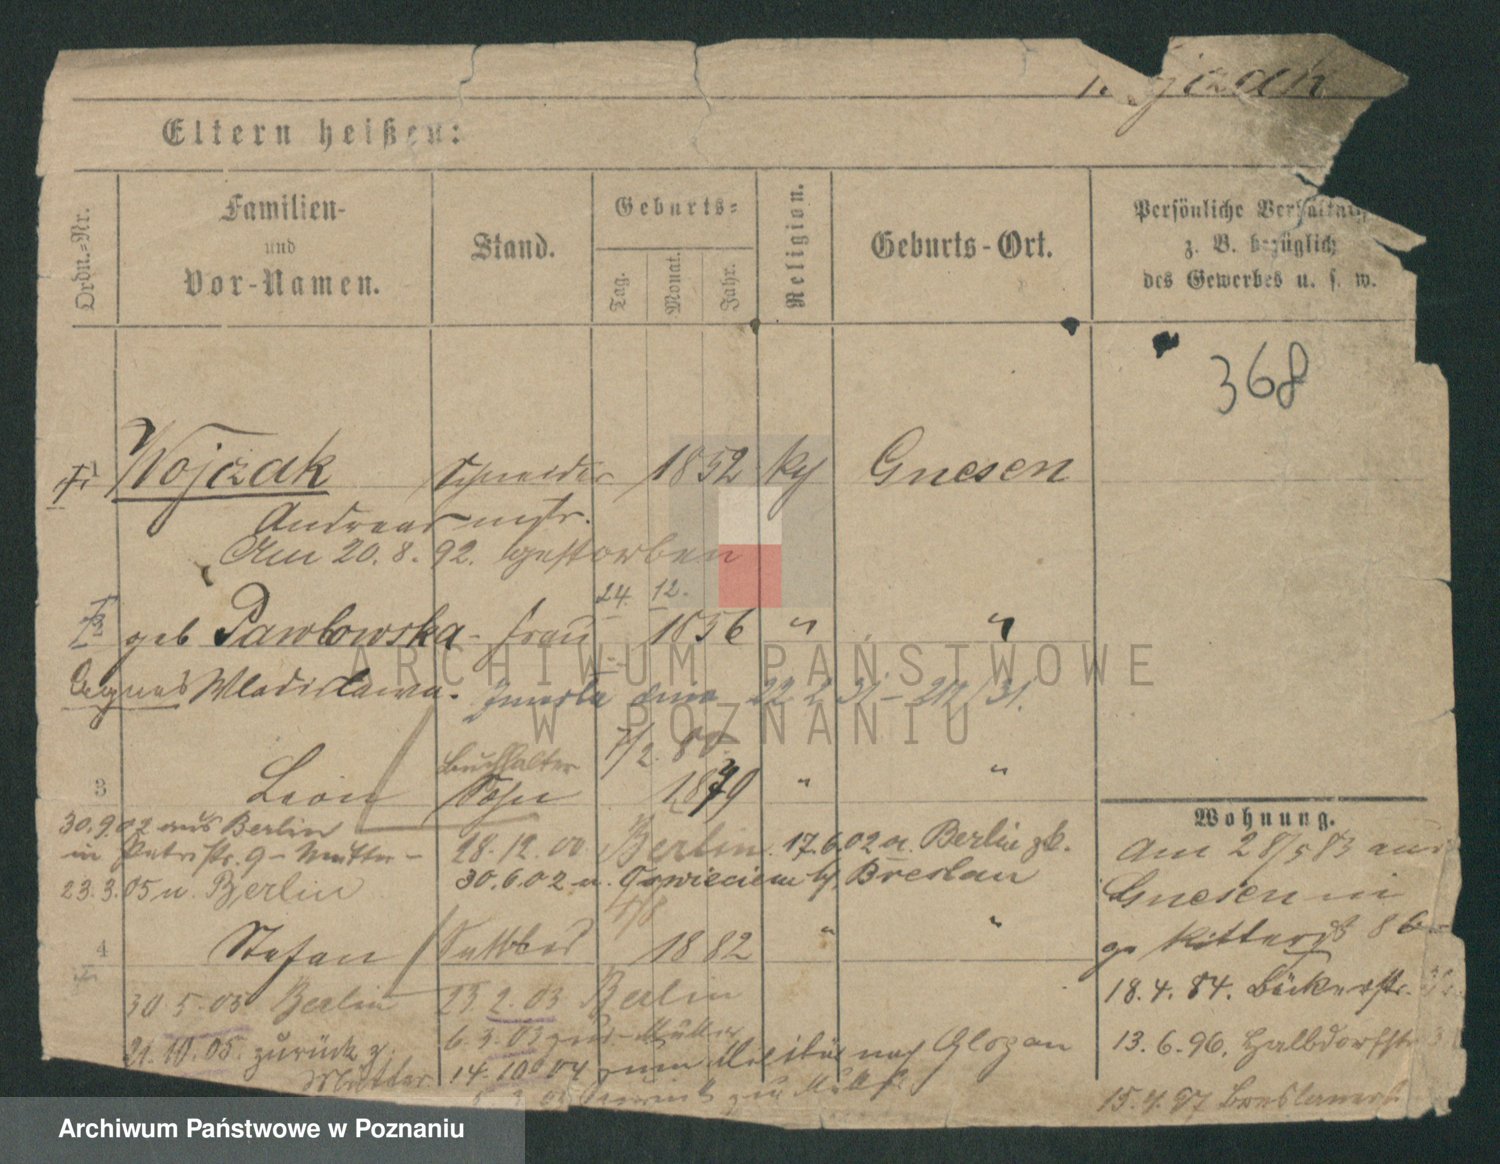 Wojczak
Eltern heißen:
Ordn.=Nr.
Familien-
und
Vor-Namen.
Stand.
Geburts=
Tag.
Monat.
Jahr.
Religion.
Geburts-Ort.
Persönliche Verhältnisse
z. B. bezüglich
des Gewerbes u. s. w.
368
1 Wojczak Schneider 1852 kg Gnesen
Andreas mstr.
Am 20.8.92. gestorben
24. 12.
2 geb Pawlowska - frau 1856 " "
Agnes Wladislawa. Zmarła dnia 22 2 31 - 212/31.
7/2. 80
Buchhalter
3 Leon Sohn 1879 " "
30.9.02 aus Berlin
in Petristr. 9 - Mutter - 28.12.00 Berlin. 17.6.02 a. Berlin zb.
23.3.05 n. Berlin 30.6.02 n. Breslau
4/8
4 Stefan 1882 " "
30.5.03 Berlin 23.2.03 Berlin
6.3.03 zur Mutter
21.10.05. zurück z. Mutter
14.10.04 zum Militär nach Glogau
zurück zur Mutt.
Wohnung.
Am 28/5 83 aus
Gnesen in
Ritterst 8
18.4.84. Bäckerstr.
13.6.96. Halbdorfstr
15.4.97 Breslauerst.
ARCHIWUM PAŃSTWOWE
W POZNANIU
Archiwum Państwowe w Poznaniu